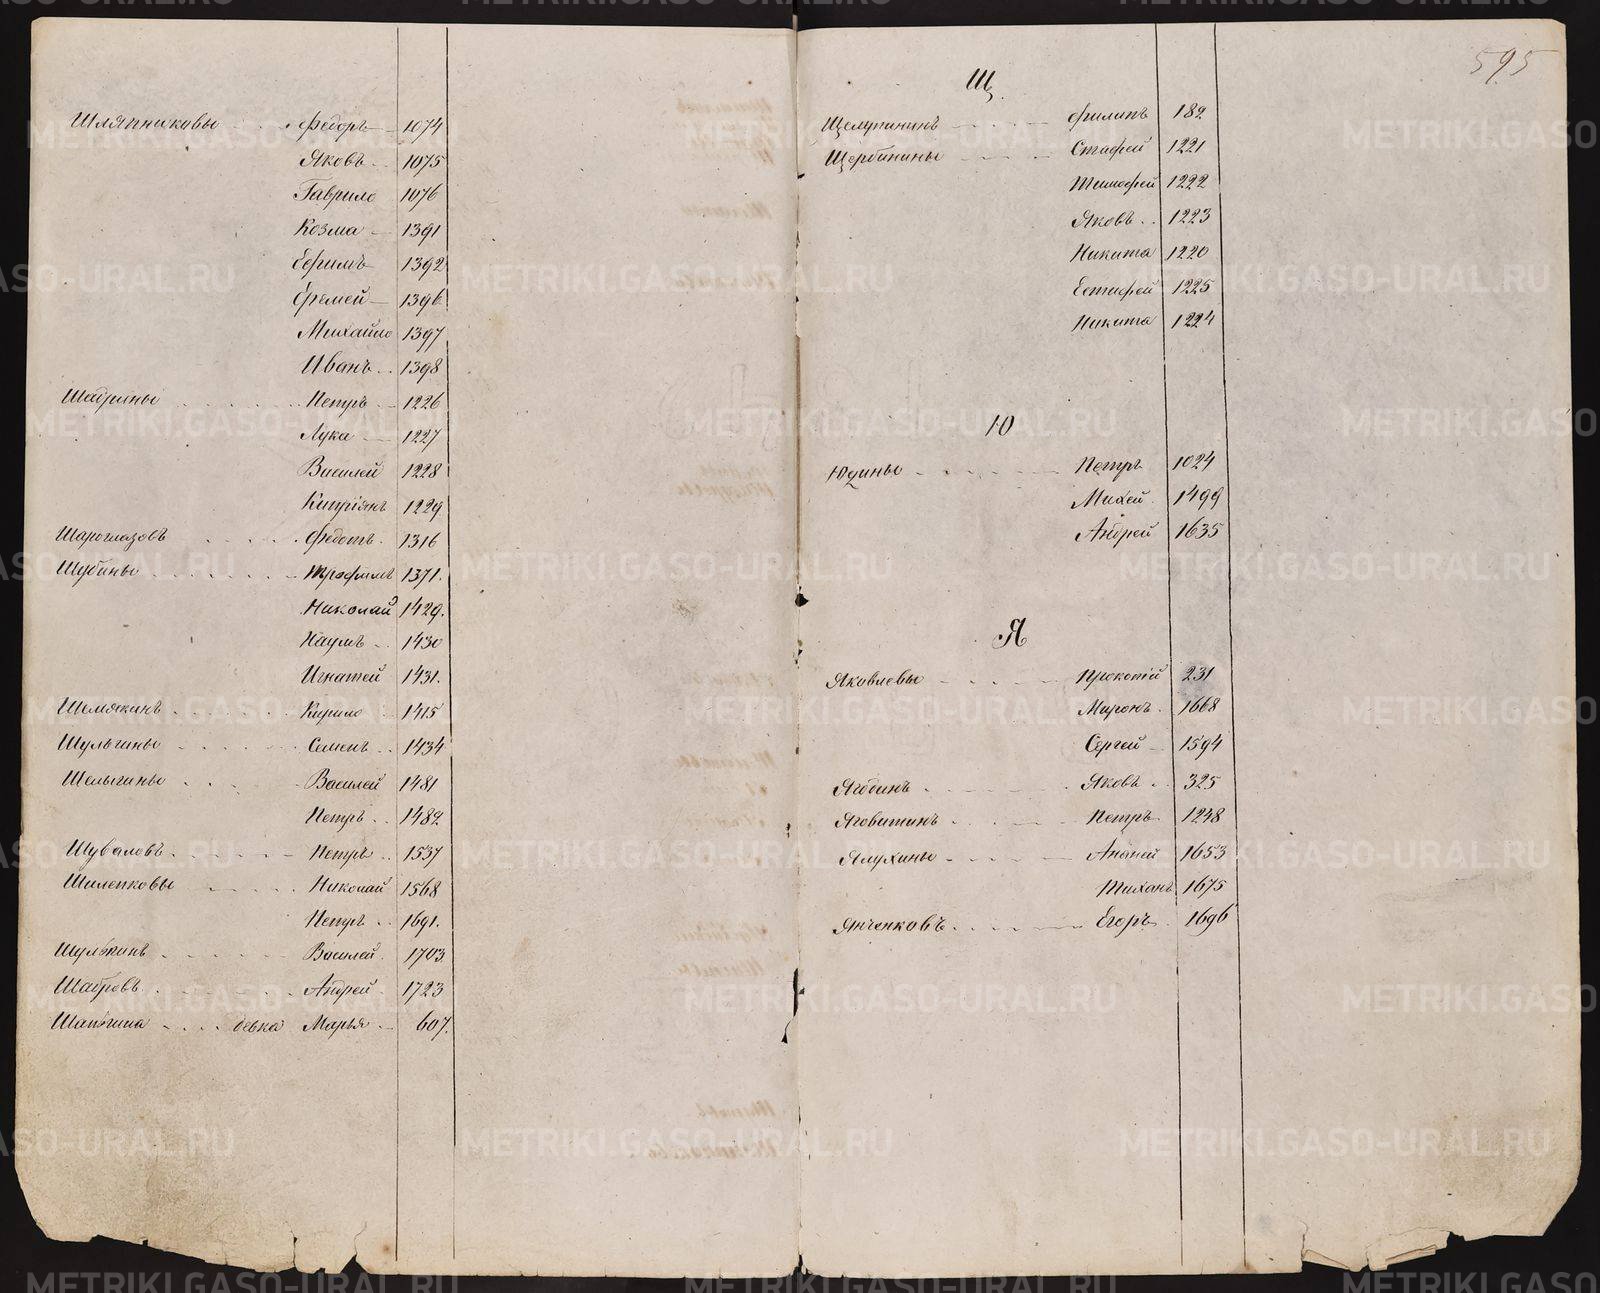 Шляпниковы Федоръ 1074
Яковъ 1075
Гаврило 1076
Козма 1391
Ефимъ 1392
Еремей 1396
Михайло 1397
Иванъ 1398
Шадрины Петръ 1226
Лука 1227
Василей 1228
Кипріянъ 1229
Шароглазовъ Федотъ 1316
Шубины Трофимъ 1371.
Николай 1429.
Наумъ 1430
Игнатей 1431.
Шемякинъ Кирило 1415
Шульгины Семенъ 1434
Шелыгины Василей 1481
Петръ 1482
Шуваловъ Петръ 1537
Шиленковы Николай 1568
Петръ 1691.
Василей 1703
Андрей 1723
девка Марья 607.
595
Щ
Щелупининъ Филипъ 182
Щербинины Стафей 1221
Тимофей 1222
Яковъ 1223
Никита 1220
Естифей 1225
Никита 1224
Ю
Юдины Петръ 1024
Михей 1499
Андрей 1635
Я
Яковлевы Прокопій 231
Миронъ 1668
Сергей 1594
Яковъ 325
Яговитинъ Петръ 1248
Ялухины Ананей 1653
Тиханъ 1675
Янченковъ Егоръ 1696
METRIKI.GASO-URAL.RU